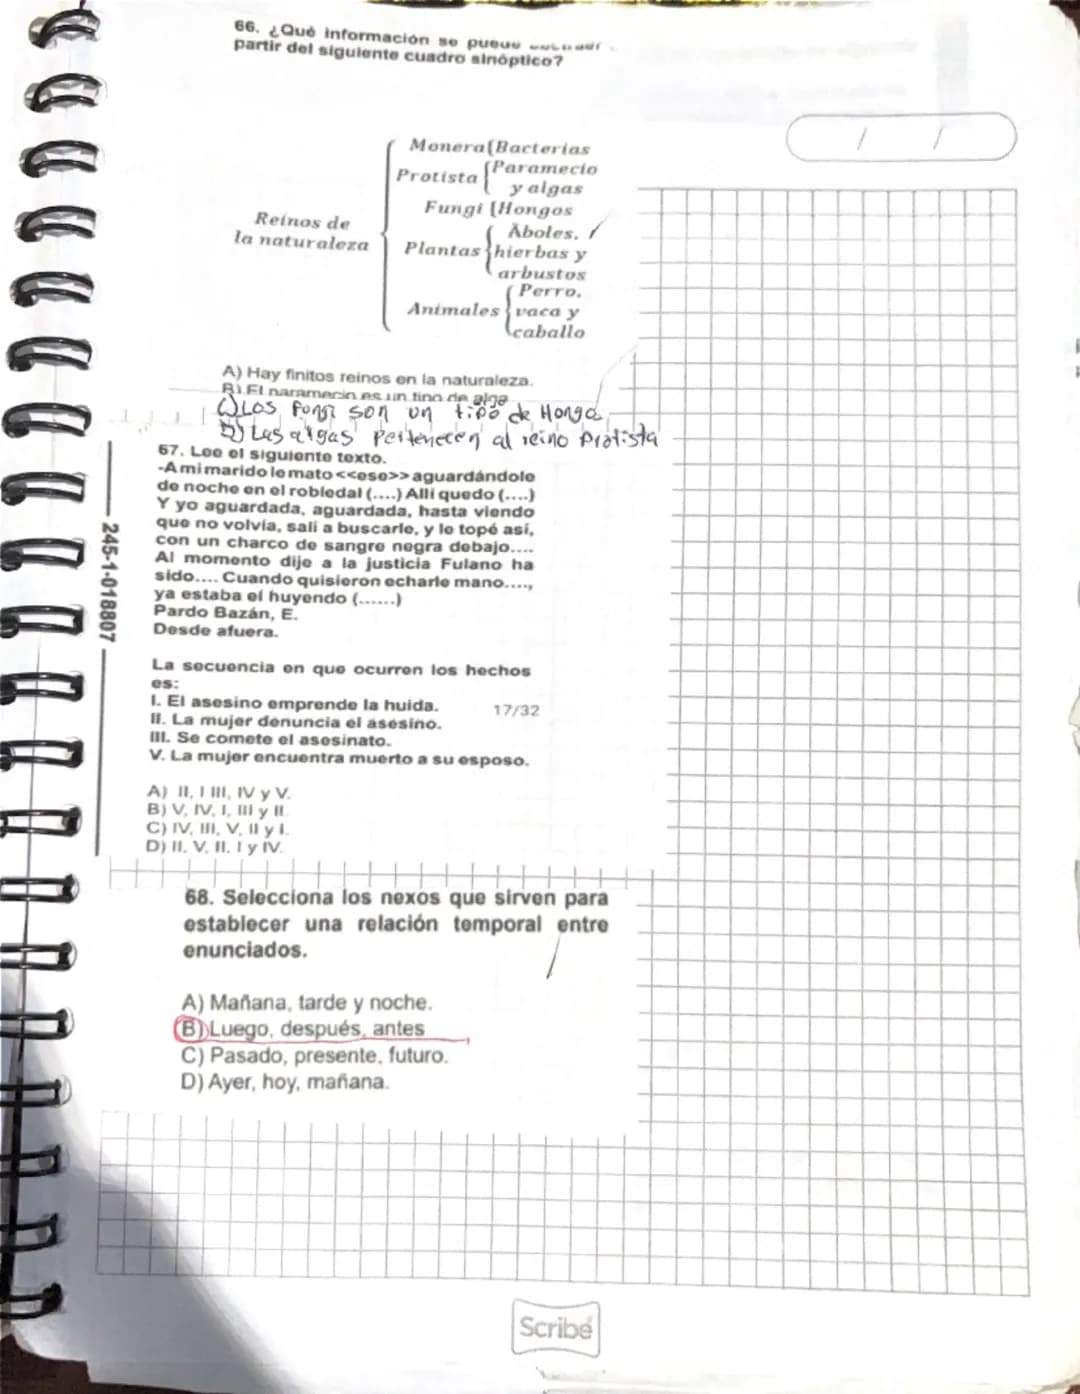 66. ¿Qué información se puede
partir del siguiente cuadro sinóptico?
/ /
Monera{Bacterias
Protista{Paramecio
y algas
Fungi {Hongos
Reinos de
la naturaleza
Äboles,
Plantas{hierbas y
arbustos
Perro,
Animales{vaca y
caballo
A) Hay finitos reinos en la naturaleza.
B) El paramecio es un tipo de alga
C) Los Fongi son un tipo de Hongo
D) Las algas Pertenecen al reino Protista
67. Lee el siguiente texto.
-A mi marido le mato <<ese>> aguardándole
de noche en el robledal (....) Allí quedo (....)
Y yo aguardada, aguardada, hasta viendo
que no volvía, salí a buscarle, y le topé así,
con un charco de sangre negra debajo....
Al momento dije a la justicia Fulano ha
sido.... Cuando quisieron echarle mano....,
ya estaba el huyendo (......)
Pardo Bazán, E.
Desde afuera.
245-1-018807
La secuencia en que ocurren los hechos
es:
I. El asesino emprende la huida.
17/32
II. La mujer denuncia el asesino.
III. Se comete el asesinato.
V. La mujer encuentra muerto a su esposo.
A) II, I III, IV y V.
B) V, IV, I, III y II.
C) IV, III, V, II y I.
D) II. V. II. I y IV.
68. Selecciona los nexos que sirven para
establecer una relación temporal entre
enunciados.
A) Mañana, tarde y noche.
B) Luego, después, antes
C) Pasado, presente, futuro.
D) Ayer, hoy, mañana.
Scribe